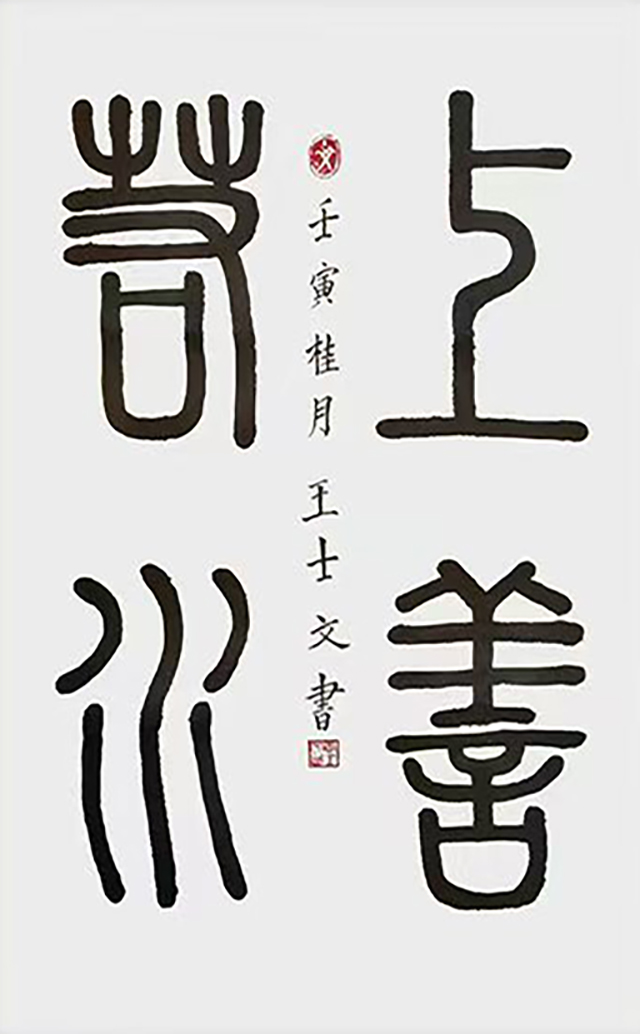 上善
若水
壬寅桂月王士文書